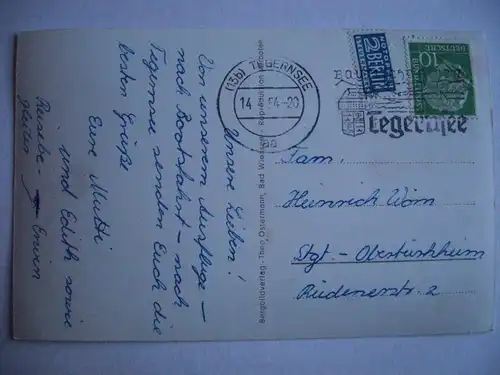 Unsere Lieben!
Von unserem Ausfluge –
nach Bootsfahrt – nach
Tegernsee senden Euch die
besten Grüße
Eure Mutti
und Edith sowie
Erwin
Bergbildverlag - Theo Ostermoor, Bad Wiessee - Reproduktion verboten
(13b) TEGERNSEE
14. 54-20
aa
Tegernsee
NOTOPFER
2 BERLIN
STEUERMARKE
DEUTSCHE
BUNDESPOST
10
Fam.
Heinrich Wörn
Stgt - Obertürkheim
Rüdernerstr. 2